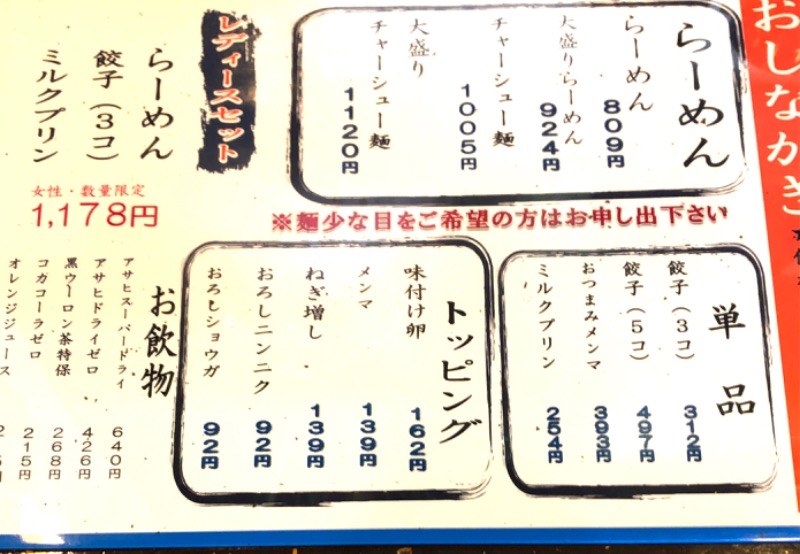 おしながき
らーめん
らーめん 809円
大盛りらーめん 924円
チャーシュー麺 1005円
大盛り
チャーシュー麺 1120円
※麺少な目をご希望の方はお申し出下さい
レディースセット
らーめん
餃子（3コ）
ミルクプリン
女性・数量限定
1,178円
単品
餃子（3コ） 312円
餃子（5コ） 497円
おつまみメンマ 393円
ミルクプリン 254円
トッピング
味付け卵 162円
メンマ 139円
ねぎ増し 139円
おろしニンニク 92円
おろしショウガ 92円
お飲物
アサヒスーパードライ 640円
アサヒドライゼロ 426円
黒ウーロン茶特保 268円
コカコーラゼロ 215円
オレンジジュース